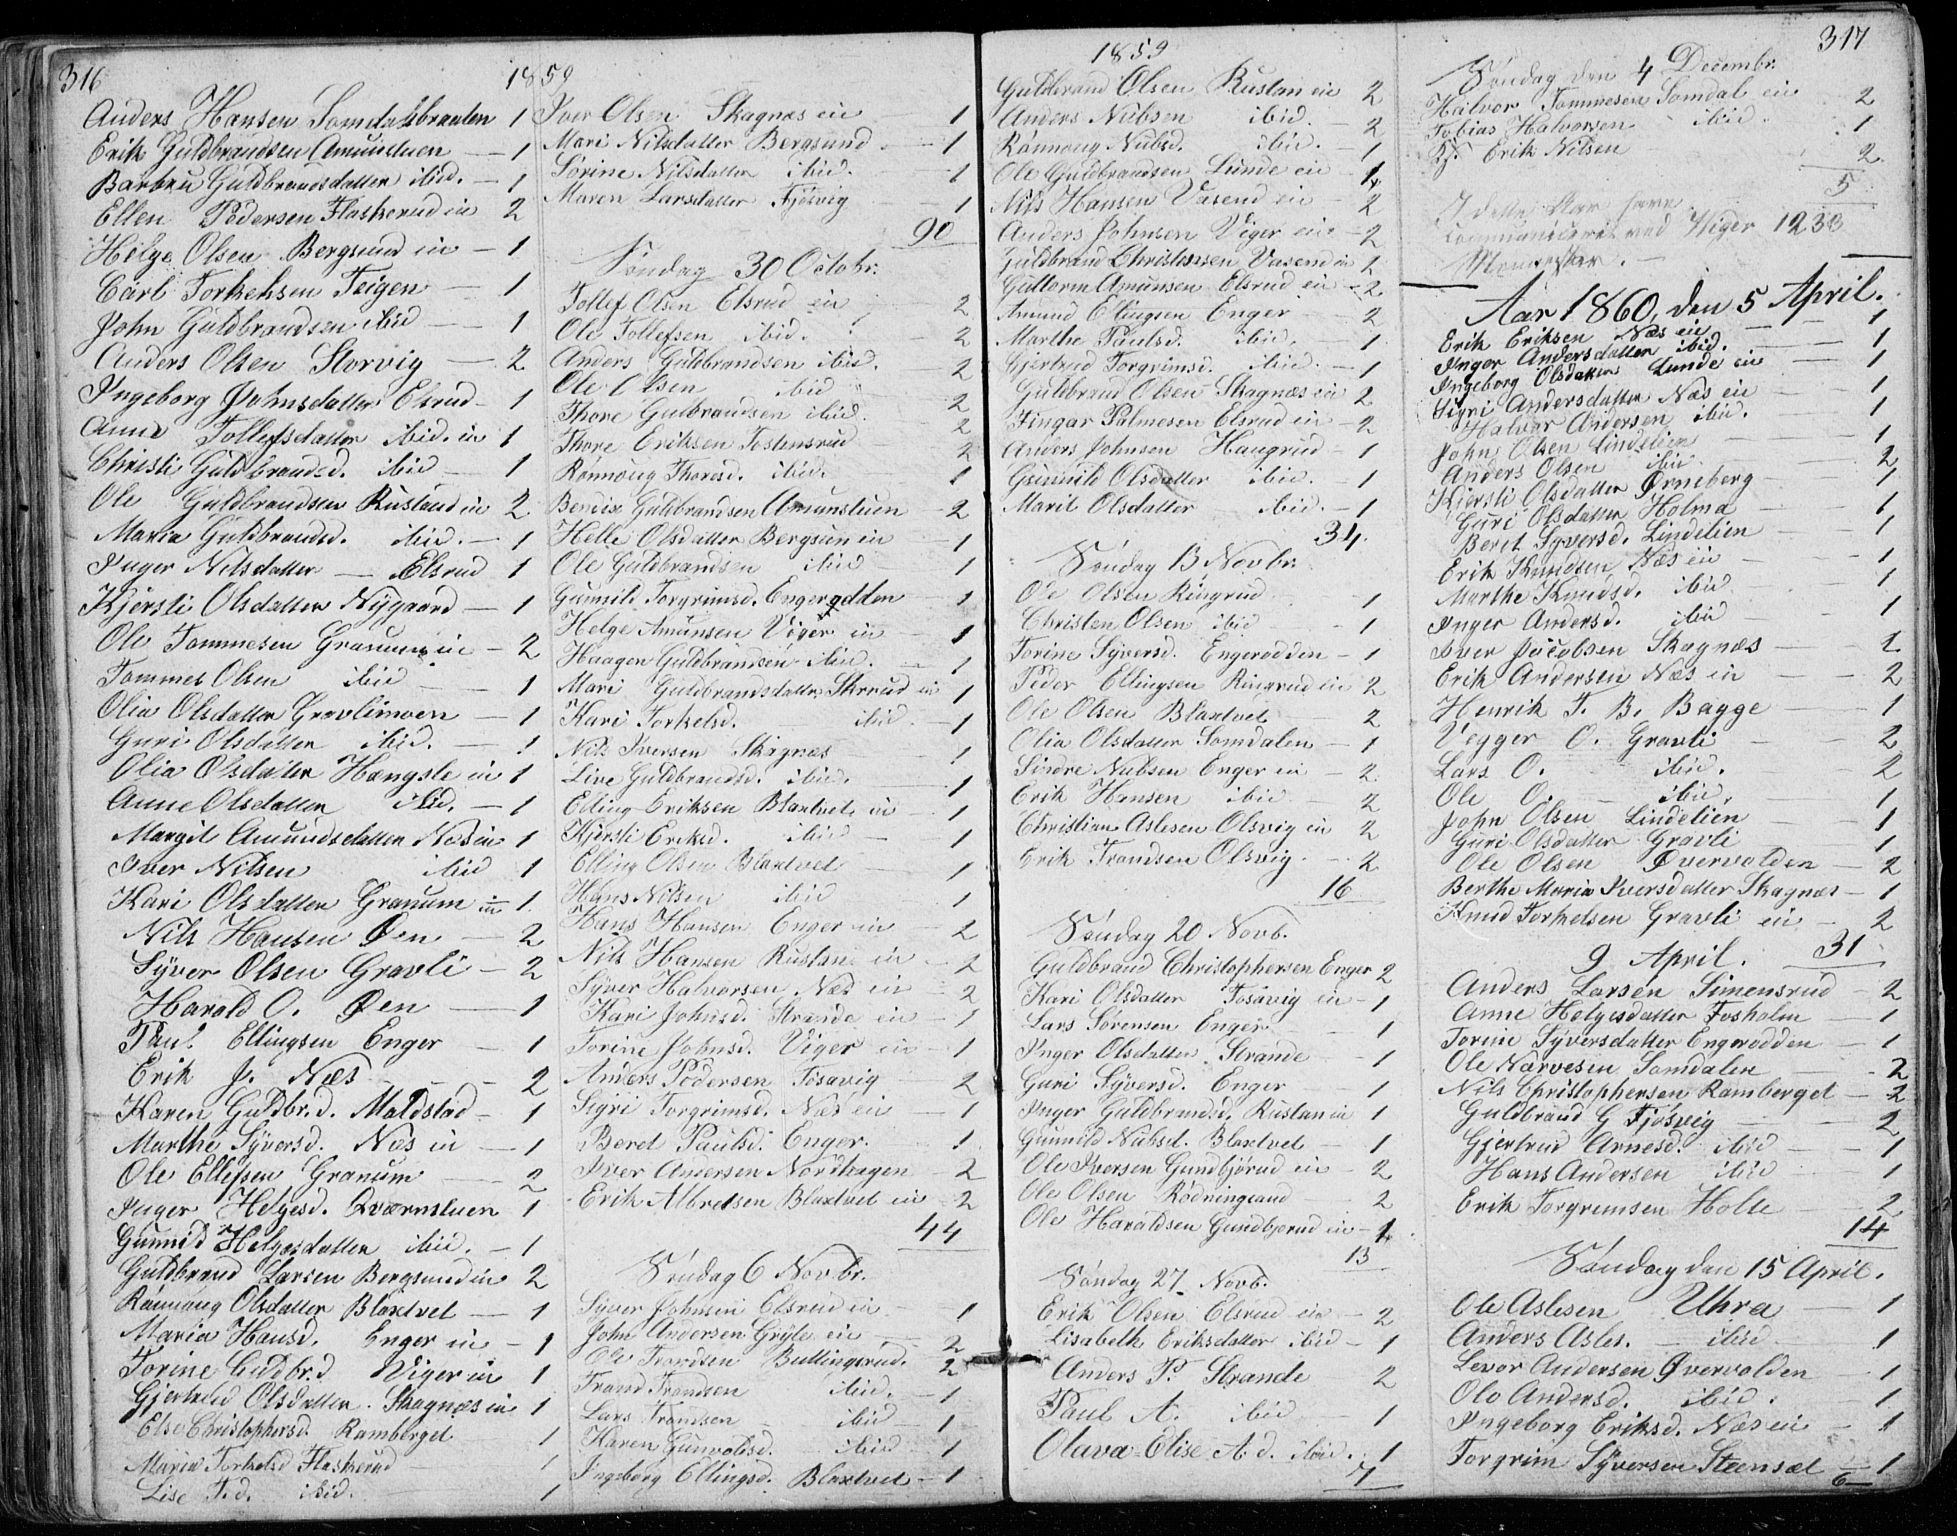 316
1859
Anders Hansen Somdalsbraaten 1
Erik Guldbrandsen Amunsluen — 1
Barbru Guldbrandsdatter ibid. — 1
Ellen Pedersen Flaskerud ein 2
Helge Olsen Bergsund ein — 1
Carl Torkelsen Teigen — 1
John Guldbrandsen ibid — 1
Anders Olsen Storvig — 2
Ingeborg Johnsdatter Elsrud — 1
Anne Tollefsdatter ibid. in 1
Christi Guldbrandsd. ibid — 1
Ole Guldbrandsen Rustand in 2
Maria Guldbrandsd. ibid. — 1
Inger Nilsdatter — Elsrud 1
Kjersti Olsdatter Nygaard — 1
Ole Tommesen Granum in — 2
Tommes Olsen ibid — 1
Olia Olsdatter Gravlimoen — 1
Guri Olsdatter ibid. — 1
Olia Olsdatter Hængsle in 1
Anne Olsdatter ibid. — 1
Margit Amundsdatter Næs in 1
Iver Nilsen ibid 1
Kari Olsdatter Granum in 1
Nils Hansen Øen — 2
Syver Olsen Gravli — 2
Harald O. Øen — 1
Paul Ellingsen Enger — 1
Erik J. Næs — 2
Karen Guldbr.d. Moldstad — 1
Marthe Syversd. Næs in — 1
Ole Ellefsen Granum — 2
Inger Helgesd. Qværnstuen 1
Gunnild Helgesdatter ibid. — 1
Guldbrand Larsen Bergsund in 2
Rønnoug Olsdatter Blaxtvet — 1
Maria Hansd. Enger in — 1
Torine Guldbr.d Viger in 1
Gjertrud Olsdatter. Skagnæs in 1
Else Christophersd. Ramberget 1
Maria Torkelsd Flaskerud 1
Lise T.d. ibid. 1
Iver Olsen Skagnæs ein 1
Mari Nilsdatter Bergsund — 1
Sørine Nilsdatter ibid. — 1
Maren Larsdatter Fjösvig — 1
90
Søndag 30 Octobr.
Tollef Olsen Elsrud ein 2
Ole Tollefsen ibid. 2
Anders Guldbrandsen ibid. 2
Ole Olsen ibid 2
Thore Gulbrandsen ibid. 2
Thore Eriksen Tostensrud 2
Rønnoug Thoresd. ibid. 1
Bendix Guldbrandsen Amunsluen 2
Helle Olsdatter Bergsun in — 1
Ole Guldbrandsen ibid — 1
Gunnil Torgrimsd. Engerodden 1
Helge Amunsen Viger in — 1
Haagen Guldbrandsen ibid. — 1
Mari Guldbrandsdatter Skrrud in 1
Kari Torkelsd. ibid. — 1
Nils Iversen Skagnæs — 1
Live Guldbrandsd. ibid. 1
Elling Eriksen Blaxtvet in — 1
Kjersti Eriksd. ibid — 1
Elling Olsen Blaxtvet — 1
Hans Nilsen ibid 1
Hans Hansen Enger in — 2
Nils Hansen Rustan in — 2
Syver Halvorsen Næs in — 2
Kari Johnsd. Strande ein — 1
Torine Johnsd. Viger in — 1
Anders Pedersen Tosavig 2
Sigri Torgrimsd. Næs ein — 1
Beret Paulsd. Enger. 1
Iver Andersen Nordhagen 2
Erik Albretsen Blaxtvet in — 2
44
Søndag 6 Novbr.
Syver Johnsen Elsrud in 1
John Andersen Gryte ein 2
Ole Trondsen Bullingsrud. 2
Trond Trondsen ibid. — 1
Lars Trondsen ibid — 1
Karen Gunvoldsd. ibid — 1
Ingeborg Ellingsd. Blaxtvet — 1
1859
Guldbrand Olsen Rustan ein 2
Anders Nubsen ibid. — 2
Rønnoug Nubsd. ibid. — 1
Ole Guldbrandsen Lunde ein — 1
Nils Hansen Vasend in — 2
Anders Johnsen Viger ein — 2
Guldbrand Christensen Vasend in 2
Guttorm Amunsen Elsrud ein — 2
Amund Ellingsen Enger 2
Marthe Paulsd. ibid. 1
Gjertrud Torgrimsd. ibid. — 1
Guldbrand Olsen Skagnæs in 2
Fingar Palmesen Elsrud in — 2
Anders Johnsen Haugrud — 1
Gunnild Olsdatter ibid. — 1
Marit Olsdatter ibid. — 1
34.
Søndag 13 Novbr.
Ole Olsen Ringrud 1
Christen Olsen ibid — 1
Torine Syversd. Engerodden — 1
Peder Ellingsen Ringrud in 2
Ole Olsen Blaxtvet 2
Olia Olsdatter Somdalen — 1
Sindre Nubsen Enger in — 2
Erik Hansen ibid 2
Christian Aslesen Olsvig in 2
Erik Trondsen Olsvig. — 2
16
Søndag 20 Novb.
Guldbrand Christophersen Enger 2
Kari Olsdatter Tosavig in — 1
Lars Sørensen Enger. — 1
Inger Olsdatter Strande — 1
Guri Syversd. Enger 1
Inger Guldbrandsd. Rustan in 1
Gunnild Nubsd. Blaxtvet — 1
Ole Iversen Gundbjørud in — 2
Ole Olsen Rødningsand 2
Ole Haraldsen Gundbjorud in — 1
13
Søndag 27. Novb.
Erik Olsen Elsrud ein — 2
Lisabeth Eriksdatter ibid — 1
Anders P. Strande 2
Paul A. ibid — 1
Olava Elise A.d. ibid. 1
7
317
Søndag den 4 Decembr.
Halvor Tommesen Somdal ein 2
Tobias Halvorsen ibid. 1
Kj. Erik Nilsen 2
5
I dette Aar have
communiceret ved Wiger 1233
Mennesker. —
Aar 1860, den 5 April.
Erik Eriksen Næs ein 1
Inger Andersdatter ibid. — 1
Ingeborg Olsdatter Lunde in 1
Sigri Andersdatter Næs ein 1
Halvor Andersen ibid. 1
John Olsen Lindelien — 1
Anders Olsen ibid. 2
Kjersti Olsdatter Ørneberg — 1
Guri Olsdatter Holma — 1
Beret Syversd. Lindelien 1
Erik Knudsen Næs ein 1
Marthe Knudsd. ibid 1
Inger Andersd. ibid 1
Iver Jacobsen Skagnæs — 2
Erik Andersen Næs in — 2
Henrik F. B. Bagge — 1
Vegger O. Gravli — 2
Lars O. ibid. — 2
Ole O. — ibid. — 1
John Olsen Lindelien — 1
Guri Olsdatter Gravli 1
Ole Olsen Øvervolden — 2
Berthe Maria Iversdatter Skagnæs — 1
Knud Torkelsen Gravli ein 2
31
9 April.
Anders Larsen Simensrud — 2
Anne Helgesdatter Fosholm — 1
Torine Syversdatter Engerodden — 1
Ole Narvesen Somdalen — 2
Nils Christophersen Ramberget — 2
Guldbrand G Fjösvig — 2
Gjertrud Arnesd. ibid — 1
Hans Andersen ibid 1
Erik Torgrimsen Holte — 2
14
Søndag den 15 April.
Ole Aslesen Uhra — 1
Anders Asles. — ibid 1
Levor Andersen Øvervolden — 1
Ole Andersd. ibid. — 1
Ingeborg Eriksd. Næs ein — 1
Torgrim Syversen Steensæt — 1
6